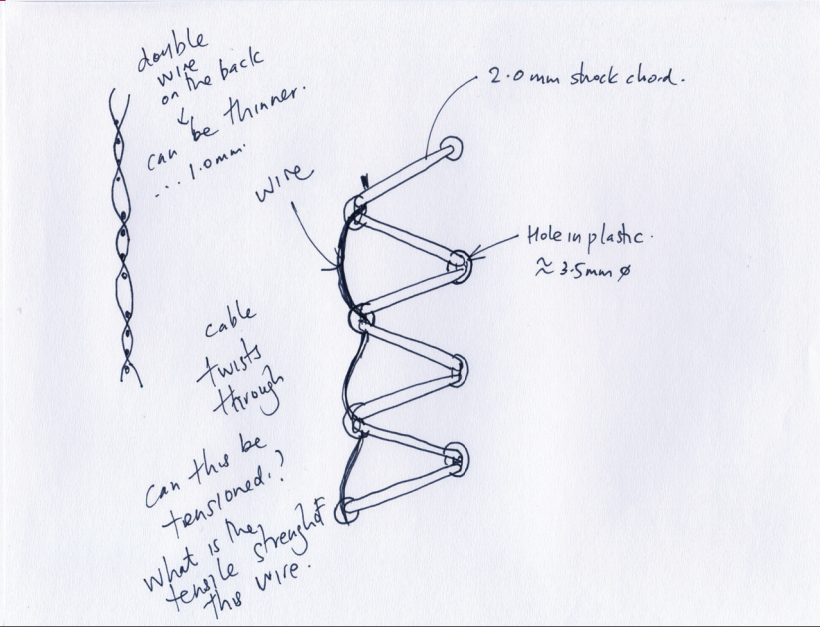 double
wire
on the back
can be thinner.
... 1.0mm.
2.0mm shock chord.
wire
Hole in plastic.
≈ 3.5mm ø
cable
twists
through
Can this be
tensioned.?
What is the
tensile strenght
this wire.